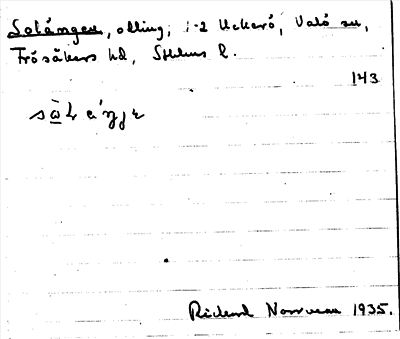 Sotängen, odling, 1-2 Uckerö, Valö sn,
Frösåkers hd, Sthlms l.
143
Rickard Norrman 1935.